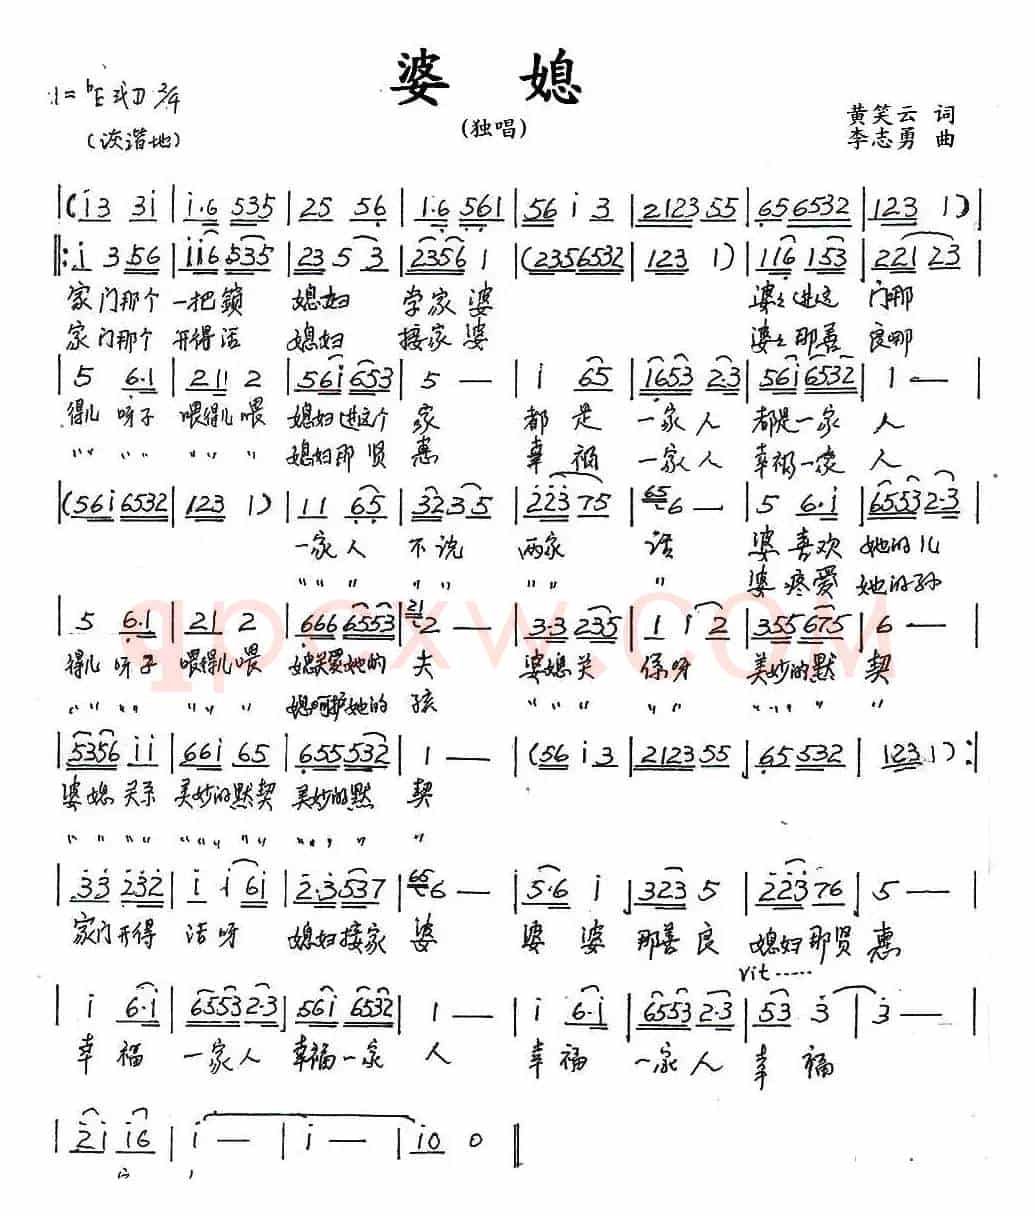 婆 媳
1=♭E或D 2/4
(诙谐地)
(独唱)
黄笑云 词
李志勇 曲
|(i3 3i|i·6 535|25 56|1·6 561|56 i 3|2123 55|65 6532|123 1)|
‖:i 3 56|ii6 535|23 5 3|2356 1|(2356532|123 1)|116 153|221 23|
家门那个 一把锁 媳妇 学家婆 婆婆进这 门那
家门那个 开得活 媳妇 接家婆 婆婆那善 良哪
|5 6·1|211 2|56i 653|5 —|i 65|i653 2·3|56i 6532|1 —|
得儿 呀子 喂得儿喂 媳妇进这个 家 都是 一家人 都是一家 人
〃〃 〃〃 〃〃 〃 媳妇那贤 惠 幸福 一家人 幸福一家 人
|(56i 6532|123 1)|11 65|323 5|223 75|6 —|5 6·i|6553 2·3|
一家人 不说 两家 话 婆喜欢 她的儿
〃〃 〃 〃〃 〃〃 〃 婆疼爱 她的孙
|5 6·1|21 2|666 6553|2 —|3·3 235|1 i 2|355 675|6 —|
得儿 呀子 喂得儿喂 媳关爱她的 夫 婆媳关 系呀 美妙的默 契
〃〃 〃〃 〃〃 〃 媳呵护她的 孩 〃〃 〃 〃〃 〃〃 〃 〃
|5356 ii|66i 65|655 532|1 —|(56 i 3|2123 55|65 532|123 1):|
婆媳 关系 美妙的默契 美妙的默 契
〃〃 〃〃 〃〃 〃〃 〃〃 〃 〃
|33 232|i i 6i|2·3 537|6 —|5·6 i|323 5|223 76|5 —|
家门开得 活呀 媳妇接家 婆 婆 婆 那善良 媳妇那贤 惠
rit·····
|i 6·i|6553 2·3|56i 6532|1 —|i 6·i|6553 2·3|53 3|3 —|
幸 福 一家人 幸福一家 人 幸 福 一家人 幸 福
|2i i6|i —|i —|i0 0‖
qpcxw.com